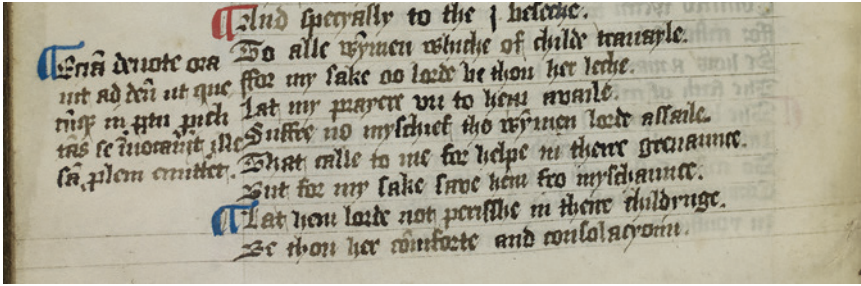 ¶And specyally to the j beseche.
To alle wȳmen whiche of childe trauayle.
ffor my sake oo lorde be thou her leche.
Lat my prayere vn to hem availe.
Suffre no myschief tho wȳmen lorde assaile.
That calle to me for helpe in theire greuaunce.
But for my sake save hem fro myschaunce.
¶Lat hem lorde not perisshe in theire childynge.
Be thou her cōmforte and consolacyoun.
¶Eciā deuote ora
uit ad deū ut que
cūqꝫ in ꝑtu ꝑicli
tās se īuocau̅it ille
sā ꝓlem emittet.